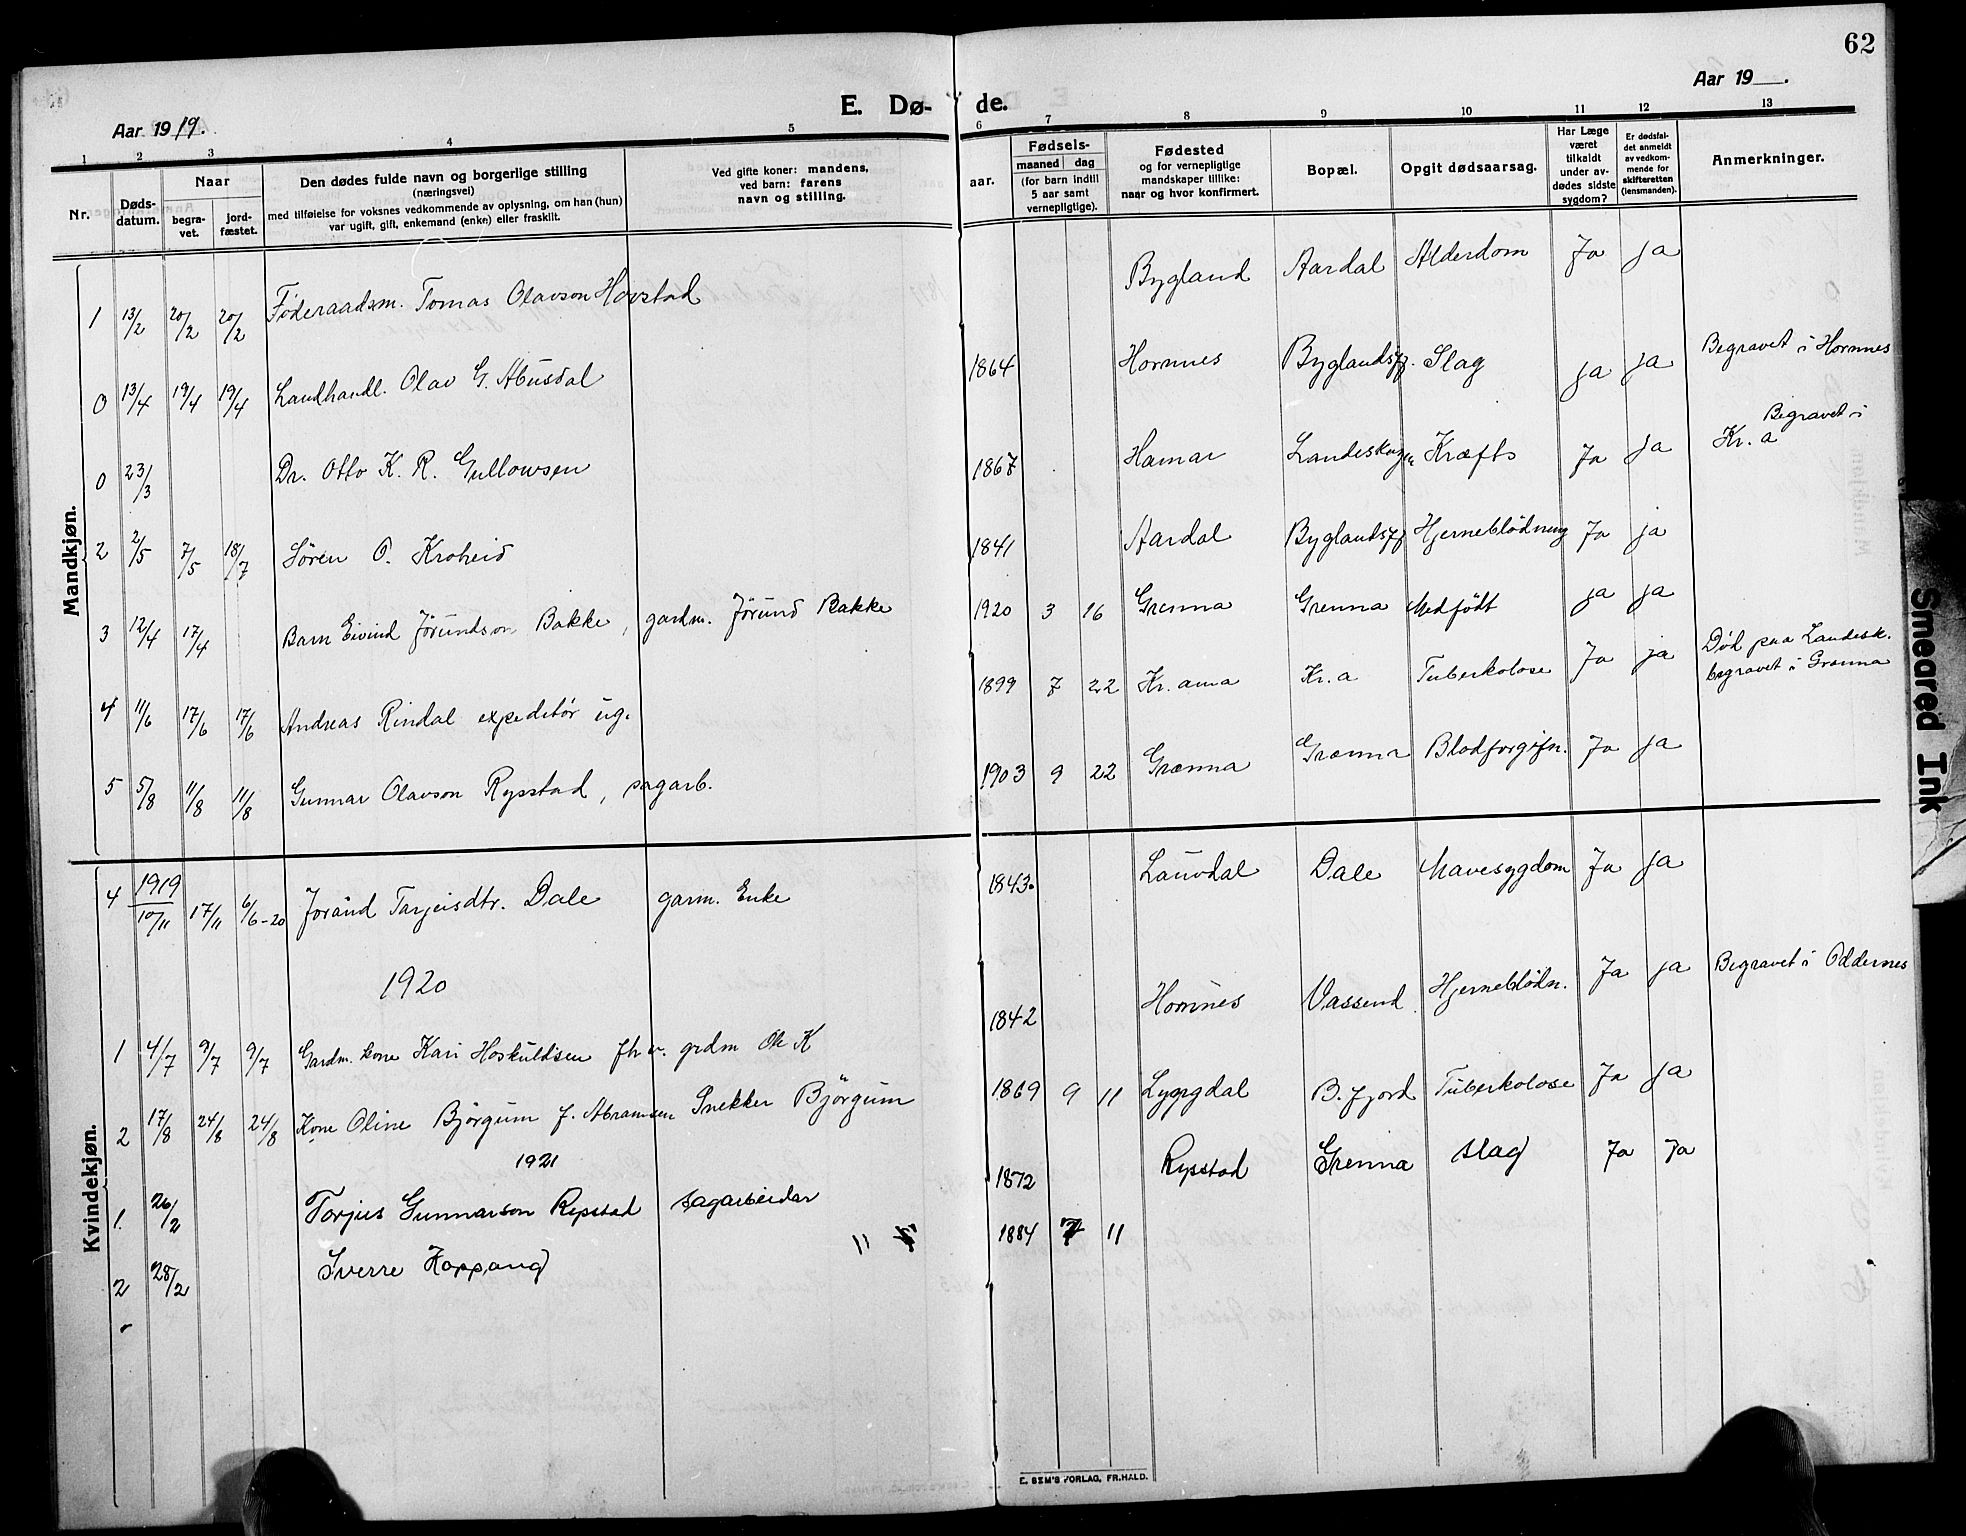 62
Aar 1919.
E. Dø-
de.
Aar 19 .
1 2 3 4 5 6 7 8 9 10 11 12 13
Nr.
Døds-
datum.
Naar
begra-
vet.
jord-
fæstet.
Den dødes fulde navn og borgerlige stilling
(næringsvei)
med tilføielse for voksnes vedkommende av oplysning, om han (hun)
var ugift, gift, enkemand (enke) eller fraskilt.
Ved gifte koner: mandens,
ved barn: farens
navn og stilling.
aar.
Fødsels-
maaned dag
(for barn indtil
5 aar samt
vernepligtige).
Fødested
og for vernepligtige
mandskaper tillike:
naar og hvor konfirmert.
Bopæl.
Opgit dødsaarsag.
Har Læge
været
tilkaldt
under av-
dødes sidste
sygdom?
Er dødsfal-
det anmeldt
av vedkom-
mende for
skifteretten
(lensmanden).
Anmerkninger.
Mandkjøn.
1 13/2 20/2 20/2 Føderaadsm. Tomas Olavson Hovstad Bygland Aardal Alderdom Ja ja
0 13/4 19/4 19/4 Landhandl. Olav G. Abusdal 1864 Hornnes Byglandsfj. Slag ja ja Begravet i Hornnes
0 23/3 Dr. Otto K. R. Gullowsen 1867 Hamar Landeskogen Kræfts Ja ja Begravet i
Kr. a
2 2/5 7/5 18/7 Søren O. Kroheid 1841 Aardal Byglandsfj Hjerneblødning Ja ja
3 12/4 17/4 Barn Eivind Jörundson Bakke, gardm. Jörund Bakke 1920 3 16 Grenna Grenna Medfødt ja ja
4 11/6 17/6 17/6 Andreas Rindal expeditør ug. 1899 7 22 Kr. ania Kr. a Tuberkolose Ja ja Død paa Landesk.
begravet i Grænna
5 5/8 11/8 11/8 Gunnar Olavson Rysstad, sagarb. 1903 9 22 Grænna Grænna Blodforgifn. Ja ja
Kvindekjøn.
4 1919
10/11 17/11 6/6-20 Joránd Tarjeisdtr. Dale garm. Enke 1843. Lauvdal Dale Mavesygdom Ja ja
1920
1 4/7 9/7 9/7 Gardm. kone Kari Hoskuldsen fhv. grdm Ole K 1842 Hornnes Vassend Hjerneblødn. Ja ja Begravet i Oddernes
2 17/8 24/8 24/8 Kone Oline Björgum f. Abramsen Snekker Björgum 1869 9 11 Lyngdal B. fjord Tuberkolose Ja ja
1921
1. 26/2 Torjus Gunnarson Rysstad sagarbeidar 1872 Rysstad Grenna slag Ja Ja
2 28/2 Sverre Koppang 11 1884 7 11
E. SEM'S FORLAG, FR.HALD.
Smeared Ink